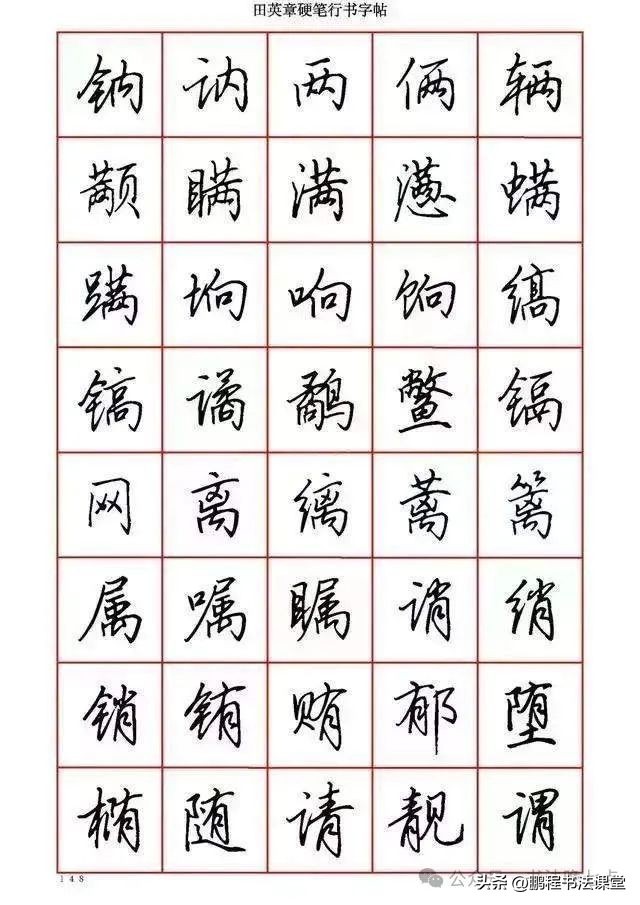 田英章硬笔行书字帖
钠 讷 两 俩 辆
颟 瞒 满 懑 螨
蹒 垧 响 饷 缟
镐 谲 鹬 鳖 镉
网 离 缡 蓠 篱
属 嘱 瞩 诮 绡
销 铕 贿 郁 堕
椭 随 请 靓 谓
148
头条 @鹏程书法课堂